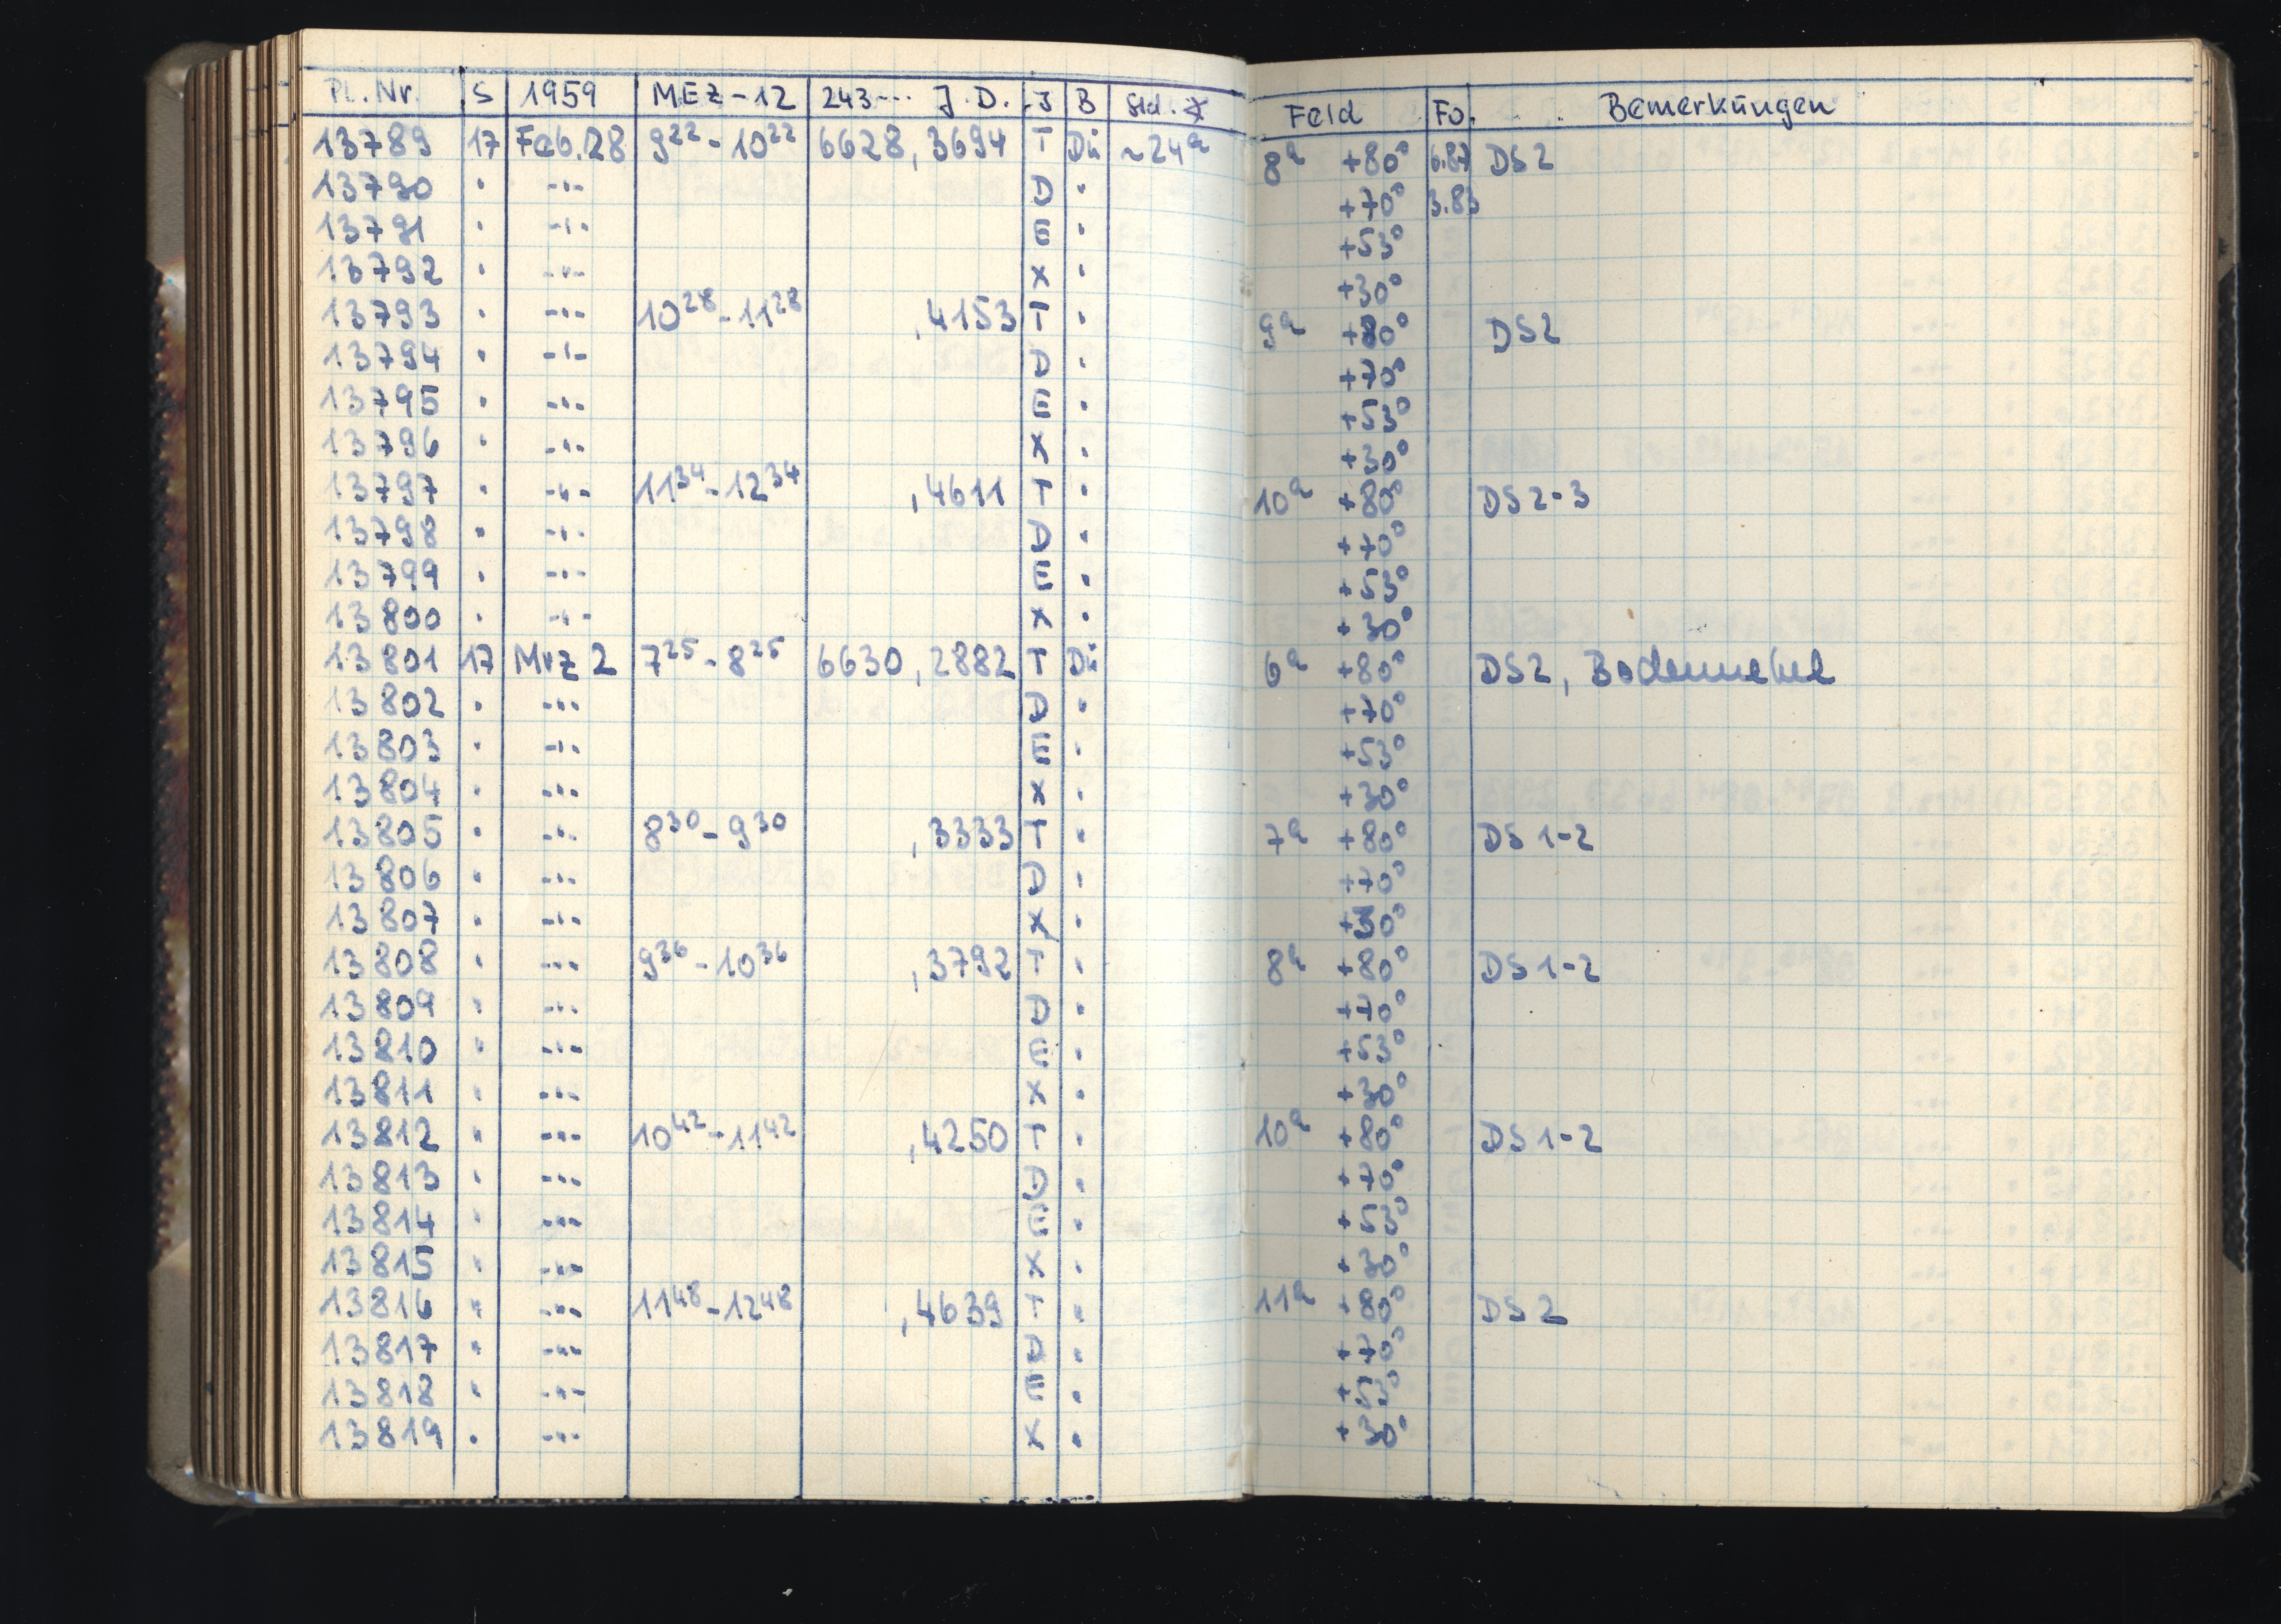 Pl. Nr. S 1959 MEZ-12 243... J.D. J B Std. * Feld Fo. Bemerkungen
13789 17 Feb. 28 9²² - 10²² 6628, 3694 T Dü ~24ʰ 8ʰ +80° 6.87 DS 2
13790 · --- D · +70° 3.83
13791 · --- E · +53°
13792 · --- X · +30°
13793 · --- 10²⁸ - 11²⁸ ,4153 T · 9ʰ +80° DS 2
13794 · --- D · +70°
13795 · --- E · +53°
13796 · --- X · +30°
13797 · --- 11³⁴ - 12³⁴ ,4611 T · 10ʰ +80° DS 2-3
13798 · --- D · +70°
13799 · --- E · +53°
13800 · --- X · +30°
13801 17 Mrz 2 7²⁵ - 8²⁵ 6630, 2882 T Dü 6ʰ +80° DS 2, Bodennebel
13802 · --- D · +70°
13803 · --- E · +53°
13804 · --- X · +30°
13805 · --- 8³⁰ - 9³⁰ ,3333 T · 7ʰ +80° DS 1-2
13806 · --- D · +70°
13807 · --- X · +30°
13808 · --- 9³⁶ - 10³⁶ ,3792 T · 8ʰ +80° DS 1-2
13809 · --- D · +70°
13810 · --- E · +53°
13811 · --- X · +30°
13812 · --- 10⁴² - 11⁴² ,4250 T · 10ʰ +80° DS 1-2
13813 · --- D · +70°
13814 · --- E · +53°
13815 · --- X · +30°
13816 · --- 11⁴⁸ - 12⁴⁸ ,4639 T · 11ʰ +80° DS 2
13817 · --- D · +70°
13818 · --- E · +53°
13819 · --- X · +30°